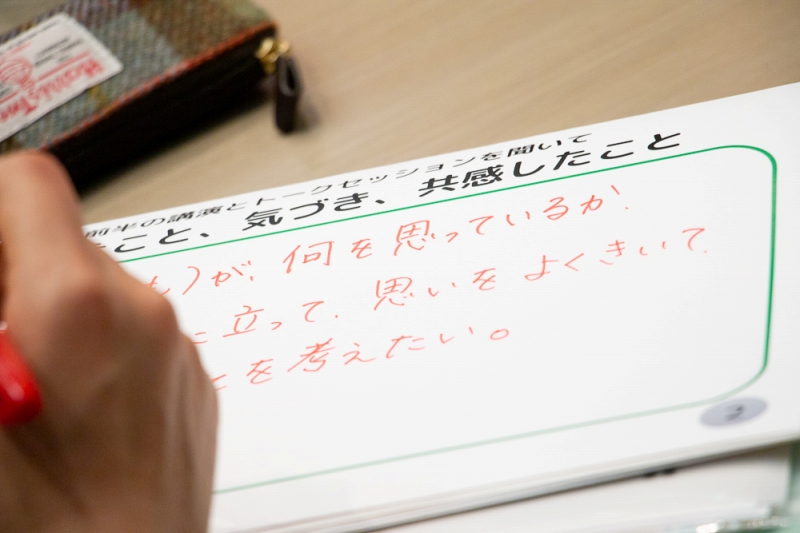 前半の講演とトークセッションを聞いて
こと、気づき、共感したこと
も)が、何を思っているか、
に立って、思いをよくきいて、
とを考えたい。
2